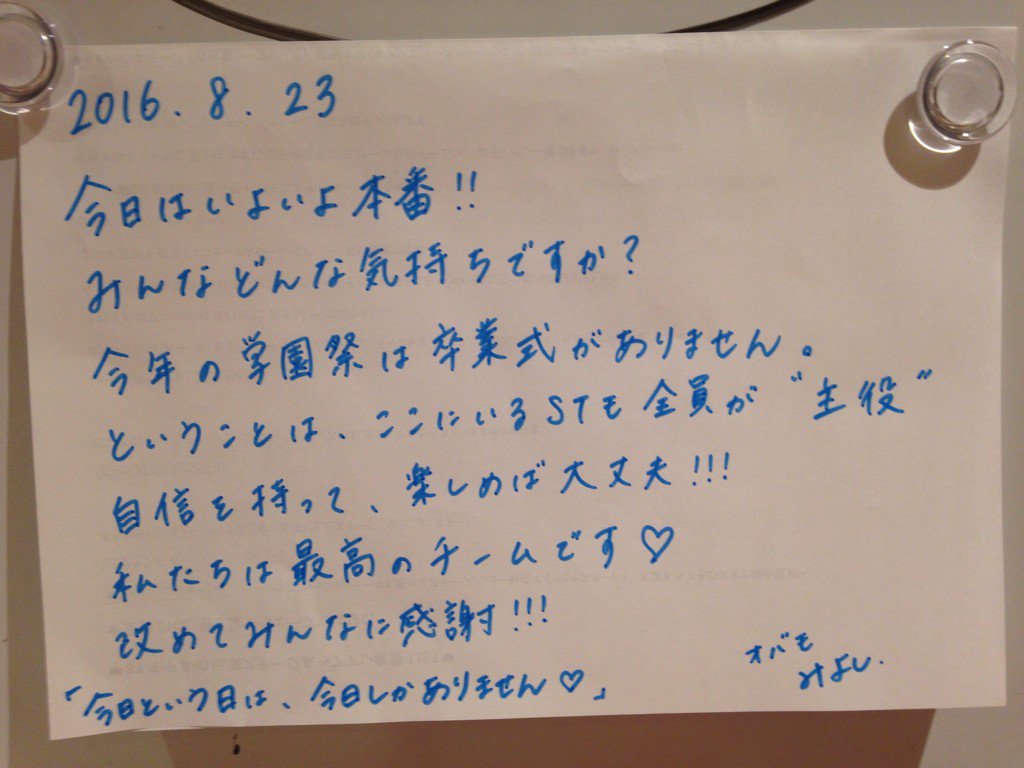 2016. 8. 23
今日はいよいよ本番!!
みんなどんな気持ちですか?
今年の学園祭は卒業式がありません。
ということは、ここにいるSTモ全員が"主役"
自信を持って、楽しめば大丈夫!!!
私たちは最高のチームです♡
改めてみんなに感謝!!!
「今日という日は、今日しかありません♡」
オバモ
みよし.